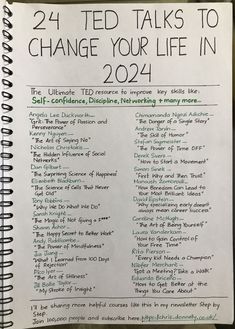 24 TED TALKS TO
CHANGE YOUR LIFE IN
2024
The Ultimate TED resource to improve key skills like:
Self-confidence, Discipline, Networking + many more...
Angela Lee Duckworth -
"Grit: The Power of Passion and
Perseverance"
Kenny Nguyen -
"The Art of Saying No"
Nicholas Christakis -
"The Hidden Influence of Social
Networks"
Dan Gilbert -
"The Surprising Science of Happiness"
Elizabeth Blackburn -
"The Science of Cells That Never
Get Old"
Tony Robbins -
"Why We Do What We Do"
Sarah Knight -
"The Magic of Not Giving a F***"
Shawn Achor -
"The Happy Secret to Better Work"
Andy Puddicombe -
"The Power of Mindfulness"
Jia Jiang -
"What I Learned From 100 Days
of Rejection"
Pico Iyer -
"The Art of Stillness"
Jill Bolte Taylor -
"My Stroke of Insight"
Chimamanda Ngozi Adichie -
"The Danger of a Single Story"
Andrew Tarvin -
"The Skill of Humor"
Stefan Sagmeister -
"The Power of Time Off"
Derek Sivers -
"How to Start a Movement"
Simon Sinek -
"First Why and Then Trust"
"How Boredom Can Lead to
Your Most Brilliant Ideas"
David Epstein -
"Why specializing early doesn't
always mean career success"
Caroline McHugh -
"The Art of Being Yourself"
Laura Vanderkam -
"How to Gain Control of
Your Free Time"
Ola Pierson -
"Every Kid Needs a Champion"
Nilofer Merchant -
"Got a Meeting? Take a Walk"
Eduardo Briceño -
"How to Get Better at the
Things You Care About"
I'll be sharing more helpful courses like this in my newsletter Step by
Step
Join 100,000 people and subscribe here: https://chris-donnelly.co.uk/